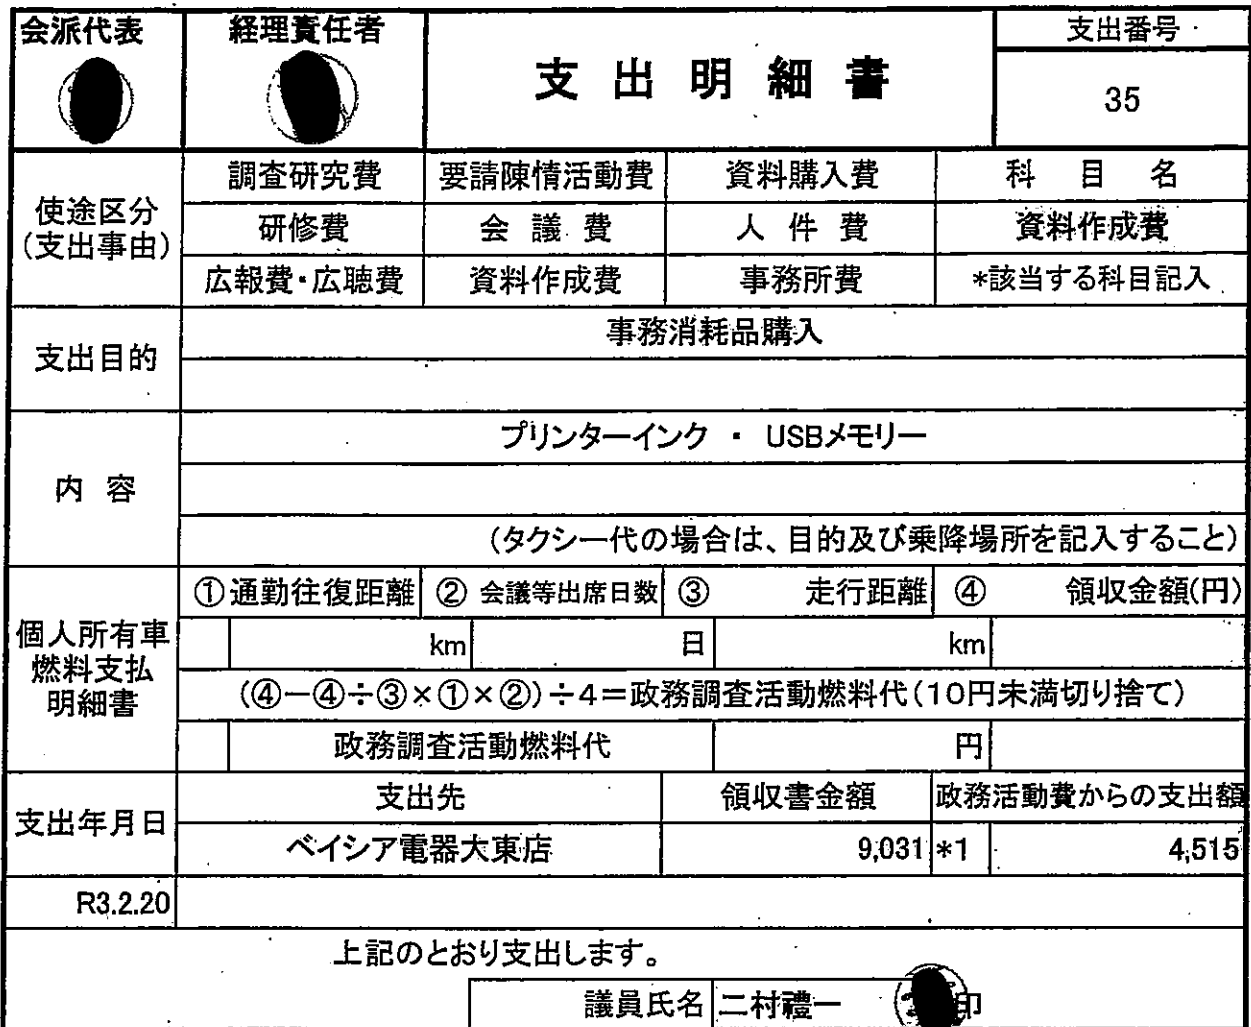 会派代表 経理責任者 支出明細書 支出番号
35
使途区分(支出事由) 調査研究費 要請陳情活動費 資料購入費 科目名
研修費 会議費 人件費 資料作成費
広報費・広聴費 資料作成費 事務所費 *該当する科目記入
支出目的 事務消耗品購入
内容 プリンターインク ・ USBメモリー
(タクシー代の場合は、目的及び乗降場所を記入すること)
個人所有車燃料支払明細書 ①通勤往復距離 ②会議等出席日数 ③走行距離 ④領収金額(円)
km 日 km
(④-④÷③×①×②)÷4=政務調査活動燃料代(10円未満切り捨て)
政務調査活動燃料代 円
支出年月日 支出先 領収書金額 政務活動費からの支出額
ベイシア電器大東店 9,031 *1 4,515
R3.2.20
上記のとおり支出します。
議員氏名 二村禮一 印